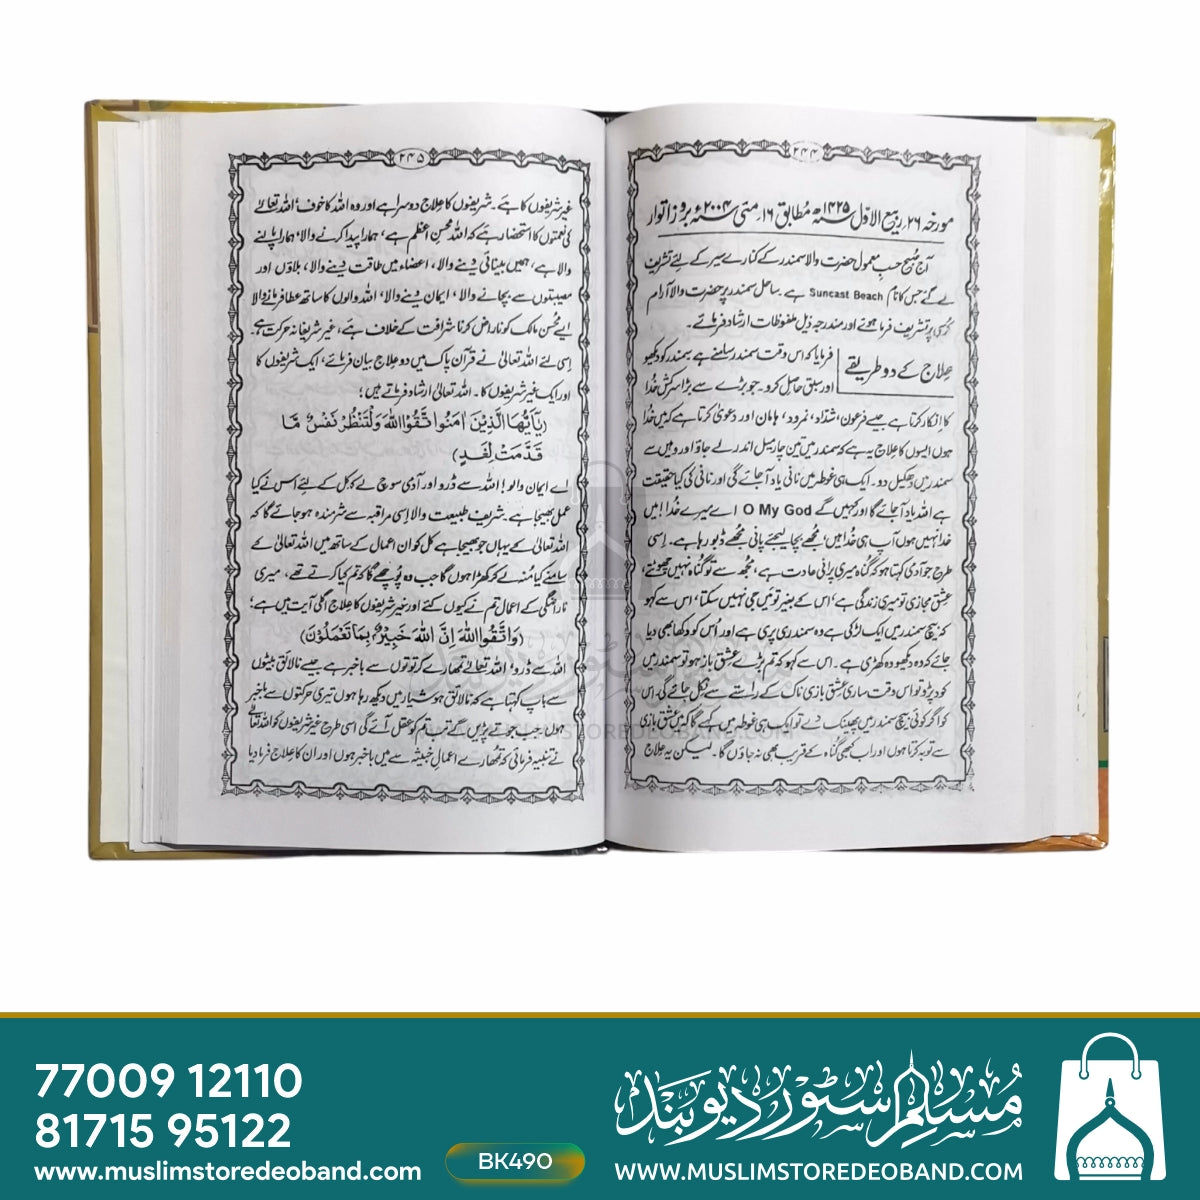 ۲۴۴
مورخہ ۲۶؍ ربیع الاوّل ۱۴۲۵ھ مُطابق ۱۶؍ مئی ۲۰۰۴ء بروز اتوار
آج صبح حسبِ معمول حضرت والا سمندر کے کنارے سیر کے لئے تشریف
لے گئے جس کا نام Suncast Beach ہے۔ ساحل سمندر پر حضرت والا آرام
کرسی پر تشریف فرما ہوئے اور مندرجہ ذیل ملفوظات ارشاد فرمائے۔
علاج کے دو طریقے
فرمایا کہ اس وقت سمندر سامنے ہے سمندر کو دیکھو
اور سبق حاصل کرو۔ جو بڑے سے بڑا سرکش خُدا
کا انکار کرتا ہے جیسے فرعون، شدّاد، نمرود، ہامان اور دعویٰ کرتا ہے کہ میں خُدا
ہوں ایسوں کا علاج یہ ہے کہ سمندر میں تین چار میل اندر لے جاؤ اور وہیں سے
سمندر میں دھکیل دو۔ ایک ہی غوطہ میں نانی یاد آجائے گی اور نانی کی کیا حقیقت
ہے اللہ یاد آجائے گا اور کہیں گے O My God اے میرے خُدا! میں
خدا نہیں ہوں آپ ہی خُدا ہیں، مُجھے بچا لیجئے پانی مُجھے ڈبو رہا ہے۔ اِسی
طرح جو آدمی کہتا ہو کہ گناہ میری پُرانی عادت ہے، مجھ سے تو گناہ نہیں چھوٹتے،
عشقِ مجازی تو میری زندگی ہے، اس کے بغیر تو میں جی نہیں سکتا، اس سے کہو
کہ بیچ سمندر میں ایک لڑکی ہے وہ سمندری پری ہے اور اُس کو دکھا بھی دیا
جائے کہ وہ دیکھو وہ کھڑی ہے۔ اس سے کہو کہ تم بڑے عشق باز ہو تو سمندر میں
کود پڑو تو اس وقت ساری عشق بازی ناک کے راستے سے نکل جائے گی۔ اس
کو اگر کوئی بیچ سمندر میں پھینک دے تو ایک ہی غوطہ میں کہے گا کہ میں عشق بازی
سے توبہ کرتا ہوں اور اب کبھی گناہ کے قریب بھی نہ جاؤں گا۔ لیکن یہ علاج
۲۴۵
غیر شریفوں کا ہے۔ شریفوں کا علاج دوسرا ہے اور وہ اللہ کا خوف، اللہ تعالیٰ
کی نعمتوں کا استحضار ہے کہ اللہ محسنِ اعظم ہے، ہمارا پیدا کرنے والا، ہمارا پالنے
والا ہے، ہمیں بینائی دینے والا، اعضاء میں طاقت دینے والا، بلاؤں اور
مصیبتوں سے بچانے والا، ایمان دینے والا، اللہ والوں کا ساتھ عطا فرمانے والا
ایسے مُحسن مالک کو ناراض کرنا شرافت کے خلاف ہے، غیر شریفانہ حرکت ہے۔
اسی لئے اللہ تعالیٰ نے قرآن پاک میں دو علاج بیان فرمائے، ایک شریفوں کا
اور ایک غیر شریفوں کا۔ اللہ تعالیٰ ارشاد فرماتے ہیں؛
(یٰۤاَیُّهَا الَّذِیْنَ اٰمَنُوا اتَّقُوا اللّٰهَ وَلْتَنْظُرْ نَفْسٌ مَّا
قَدَّمَتْ لِغَدٍ)
اے ایمان والو! اللہ سے ڈرو اور آدمی سوچ لے کہ کل کے لئے اس نے کیا
عمل بھیجا ہے۔ شریف طبیعت والا اِسی مراقبہ سے شرمندہ ہو جائے گا کہ
اللہ تعالیٰ کے یہاں جو بھیجا ہے کل کو ان اعمال کے ساتھ میں اللہ تعالیٰ کے
سامنے کیا مُنہ لے کر کھڑا ہوں گا جب وہ پُوچھے گا کہ تم کیا کرتے تھے، میری
ناراضگی کے اعمال تم نے کیوں کئے اور غیر شریفوں کا علاج اگلی آیت میں ہے؛
(وَاتَّقُوا اللّٰهَ اِنَّ اللّٰهَ خَبِیْرٌۢ بِمَا تَعْمَلُوْنَ)
اللہ سے ڈرو، اللہ تعالیٰ تمھارے کرتوتوں سے باخبر ہے جیسے نالائق بیٹوں
سے باپ کہتا ہے کہ نالائق ہوشیار میں دیکھ رہا ہوں تیری حرکتوں سے باخبر
ہوں، جب جوتے پڑیں گے تب تم کو عقل آئے گی اسی طرح غیر شریفوں کو اللہ تعالیٰ
نے تنبیہ فرمائی کہ تمھارے اعمالِ خبیثہ سے میں باخبر ہوں اور ان کا علاج فرما دیا
مسلم سٹور دیوبند
WWW.MUSLIMSTOREDEOBAND.COM
77009 12110
81715 95122
www.muslimstoredeoband.com
BK490
مسلم سٹور دیوبند
WWW.MUSLIMSTOREDEOBAND.COM